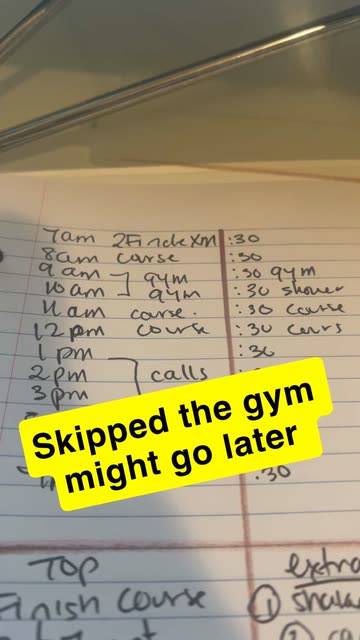 7am :30
8am course :30
9am gym :30 gym
10am gym :30 shower
11am course. :30 course
12pm course :30 cours
1pm :30
2pm calls
3pm
Skipped the gym
might go later
.30
TOP extra
Finish course ① shake
②